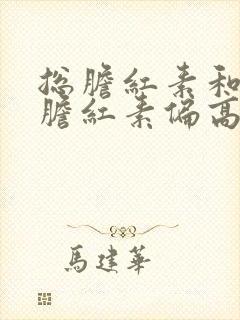 总膽紅素和
膽紅素偏高
馬建華